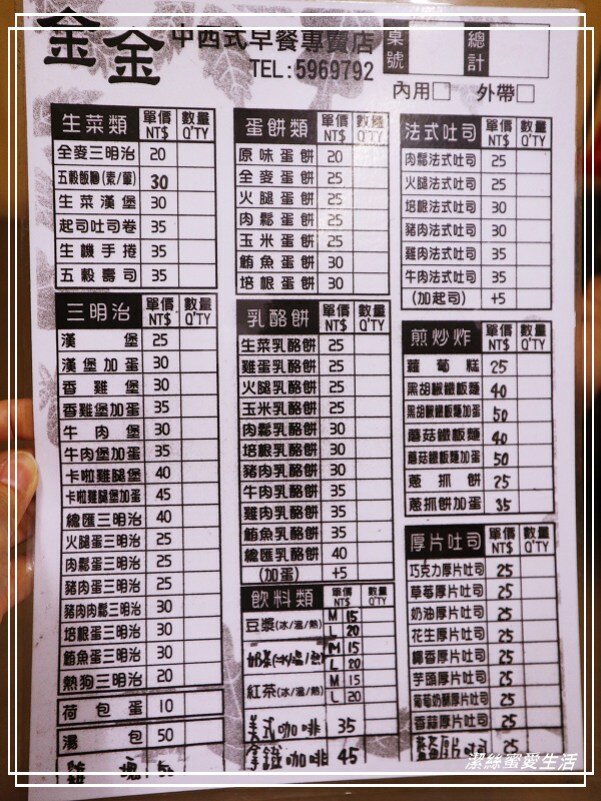 金金 中西式早餐專賣店
TEL:5969792
桌號 總計
內用□ 外帶□
生菜類 單價NT$ 數量Q'TY
全麥三明治 20
五穀飯糰(素/葷) 30
生菜漢堡 30
起司吐司卷 35
生機手捲 35
五穀壽司 35
三明治 單價NT$ 數量Q'TY
漢堡 25
漢堡加蛋 30
香雞堡 30
香雞堡加蛋 35
牛肉堡 30
牛肉堡加蛋 35
卡啦雞腿堡 40
卡啦雞腿堡加蛋 45
總匯三明治 40
火腿蛋三明治 25
肉鬆蛋三明治 25
豬肉蛋三明治 25
豬肉肉鬆三明治 30
培根蛋三明治 30
鮪魚蛋三明治 30
熱狗三明治 20
荷包蛋 10
湯包 50
雞塊 50
蛋餅類 單價NT$ 數量Q'TY
原味蛋餅 20
全麥蛋餅 25
火腿蛋餅 25
肉鬆蛋餅 25
玉米蛋餅 25
鮪魚蛋餅 30
培根蛋餅 30
乳酪餅 單價NT$ 數量Q'TY
生菜乳酪餅 25
雞蛋乳酪餅 25
火腿乳酪餅 25
玉米乳酪餅 25
肉鬆乳酪餅 30
培根乳酪餅 30
豬肉乳酪餅 30
牛肉乳酪餅 35
雞肉乳酪餅 35
鮪魚乳酪餅 35
總匯乳酪餅 40
(加蛋) +5
飲料類 單價NT$ 數量Q'TY
豆漿(冰/溫/熱) M 15
L 20
奶茶(冰/溫/熱) M 15
L 20
紅茶(冰/溫/熱) M 15
L 20
美式咖啡 35
拿鐵咖啡 45
法式吐司 單價NT$ 數量Q'TY
肉鬆法式吐司 25
火腿法式吐司 25
培根法式吐司 30
豬肉法式吐司 30
雞肉法式吐司 35
牛肉法式吐司 35
(加起司) +5
煎炒炸 單價NT$ 數量Q'TY
蘿蔔糕 25
黑胡椒鐵板麵 40
黑胡椒鐵板麵加蛋 50
蘑菇鐵板麵 40
蘑菇鐵板麵加蛋 50
蔥抓餅 25
蔥抓餅加蛋 35
厚片吐司 單價NT$ 數量Q'TY
巧克力厚片吐司 25
草莓厚片吐司 25
奶油厚片吐司 25
花生厚片吐司 25
椰香厚片吐司 25
芋頭厚片吐司 25
葡萄奶酥厚片吐司 25
香蒜厚片吐司 25
厚片吐司 25
潔絲蜜愛生活